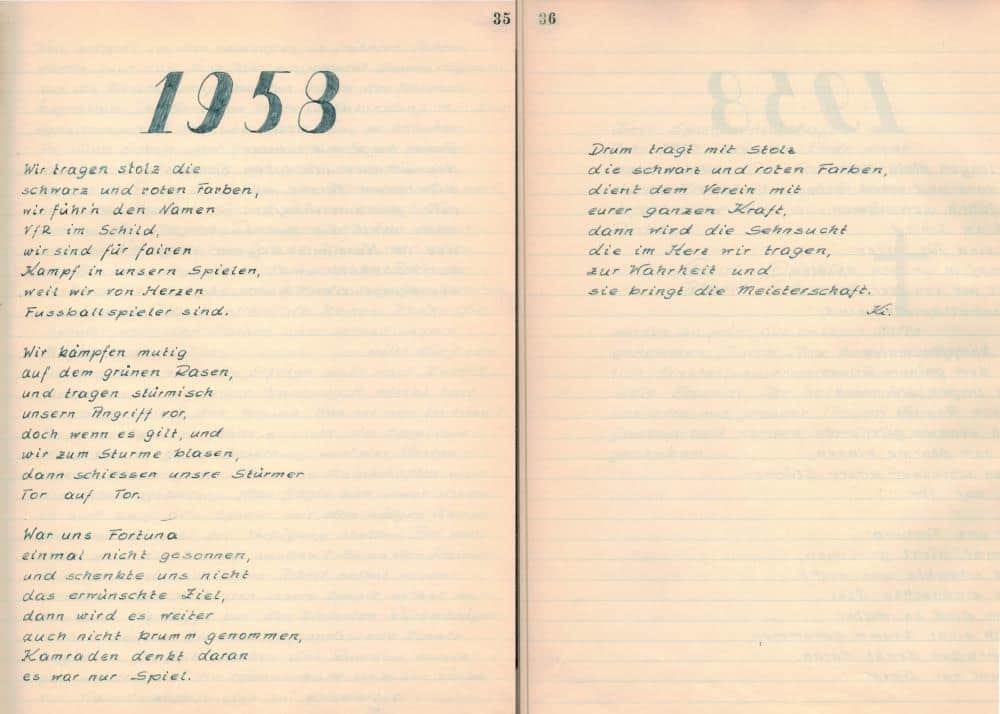 35
1958
Wir tragen stolz die
schwarz und roten Farben,
wir führ'n den Namen
VfR im Schild,
wir sind für fairen
Kampf in unsern Spielen,
weil wir von Herzen
Fussballspieler sind.
Wir kämpfen mutig
auf dem grünen Rasen,
und tragen stürmisch
unsern Angriff vor,
doch wenn es gilt, und
wir zum Sturme blasen,
dann schiessen unsre Stürmer
Tor auf Tor.
War uns Fortuna
einmal nicht gesonnen,
und schenkte uns nicht
das erwünschte Ziel,
dann wird es weiter
auch nicht krumm genommen,
Kamraden denkt daran
es war nur Spiel.
36
Drum tragt mit Stolz
die schwarz und roten Farben,
dient dem Verein mit
eurer ganzen Kraft,
dann wird die Sehnsucht
die im Herz wir tragen,
zur Wahrheit und
sie bringt die Meisterschaft.
Ki.